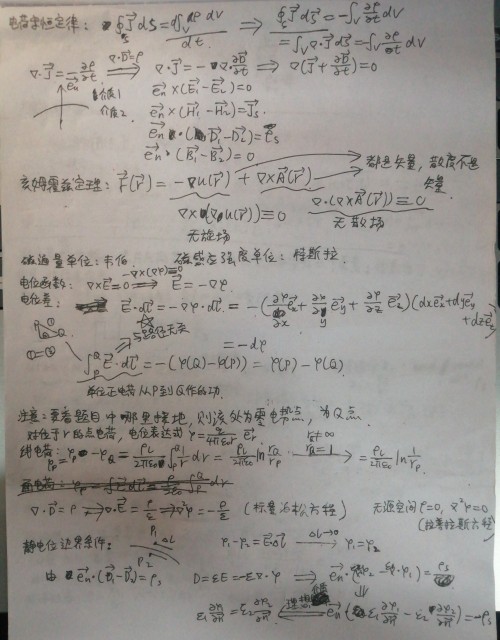 电荷守恒定律: ∮_S J⃗ dS⃗ = d∫_V ρ dV / dt ⟹ ∮_S J⃗ dS⃗ = -∫_V ∂ρ/∂t dV
= ∫_V ∇·J⃗ dS⃗ = ∫_V ∂ρ/∂t dV
∇·J⃗ = -∂ρ/∂t ⟹ ∇·D⃗=ρ ∇·J⃗ = -∇·∂D⃗/∂t ⟹ ∇(J⃗ + ∂D⃗/∂t) = 0
e⃗n 介质1
介质2
e⃗n×(E⃗1-E⃗2)=0
e⃗n×(H⃗1-H⃗2)=J⃗s
e⃗n·(D⃗1-D⃗2)=ρs
e⃗n·(B⃗1-B⃗2)=0
亥姆霍兹定理: F⃗(r⃗) = -∇u(r⃗) + ∇×A⃗(r⃗) 都是矢量, 散度不是矢量
∇×(∇u(r⃗))≡0 ∇·(∇×A⃗(r⃗))≡0
无旋场 无散场
磁通量单位: 韦伯 磁感应强度单位: 特斯拉
电位函数: ∇×E⃗=0 ⟹ -∇×(∇φ)≡0 E⃗ = -∇φ
电位差: E⃗·dl⃗ = -∇φ·dl⃗ = -(∂φ/∂x e⃗x + ∂φ/∂y e⃗y + ∂φ/∂z e⃗z)(dxe⃗x+dye⃗y+dze⃗z)
与路径无关 = -dφ
①=②
∫_P^Q E⃗·dl⃗ = -(φ(Q)-φ(P)) = φ(P)-φ(Q)
单位正电荷从P到Q作的功.
注意: 要看题目中哪里接地, 则该处为零电势点, 为Q点.
对位于r的点电荷, 电位表达式 φ = q/4πε0r
线电荷: φP-φQ = ρl/2πε0 ∫ 1/r dr = ρl/2πε0 ln rQ/rP ⟶ rQ=1 = ρl/2πε0 ln 1/rP
∇·D⃗=ρ ⟹ ∇·E⃗=ρ/ε ⟹ ∇²φ=-ρ/ε (标量泊松方程) 无源空间 ρ=0, ∇²φ=0
(拉普拉斯方程)
静电位边界条件: P1 Δl P2 φ1-φ2=E⃗Δl⃗ Δl→0 ⟶ φ1=φ2
由 e⃗n·(D⃗1-D⃗2)=ρs D=εE=-ε∇·φ ⟹ e⃗n·
ε1 ∂φ1/∂n = ε2 ∂φ2/∂n ⟸ 理想介质 e⃗n(ε1 ∂φ1/∂n - ε2 ∂φ2/∂n) = -ρs